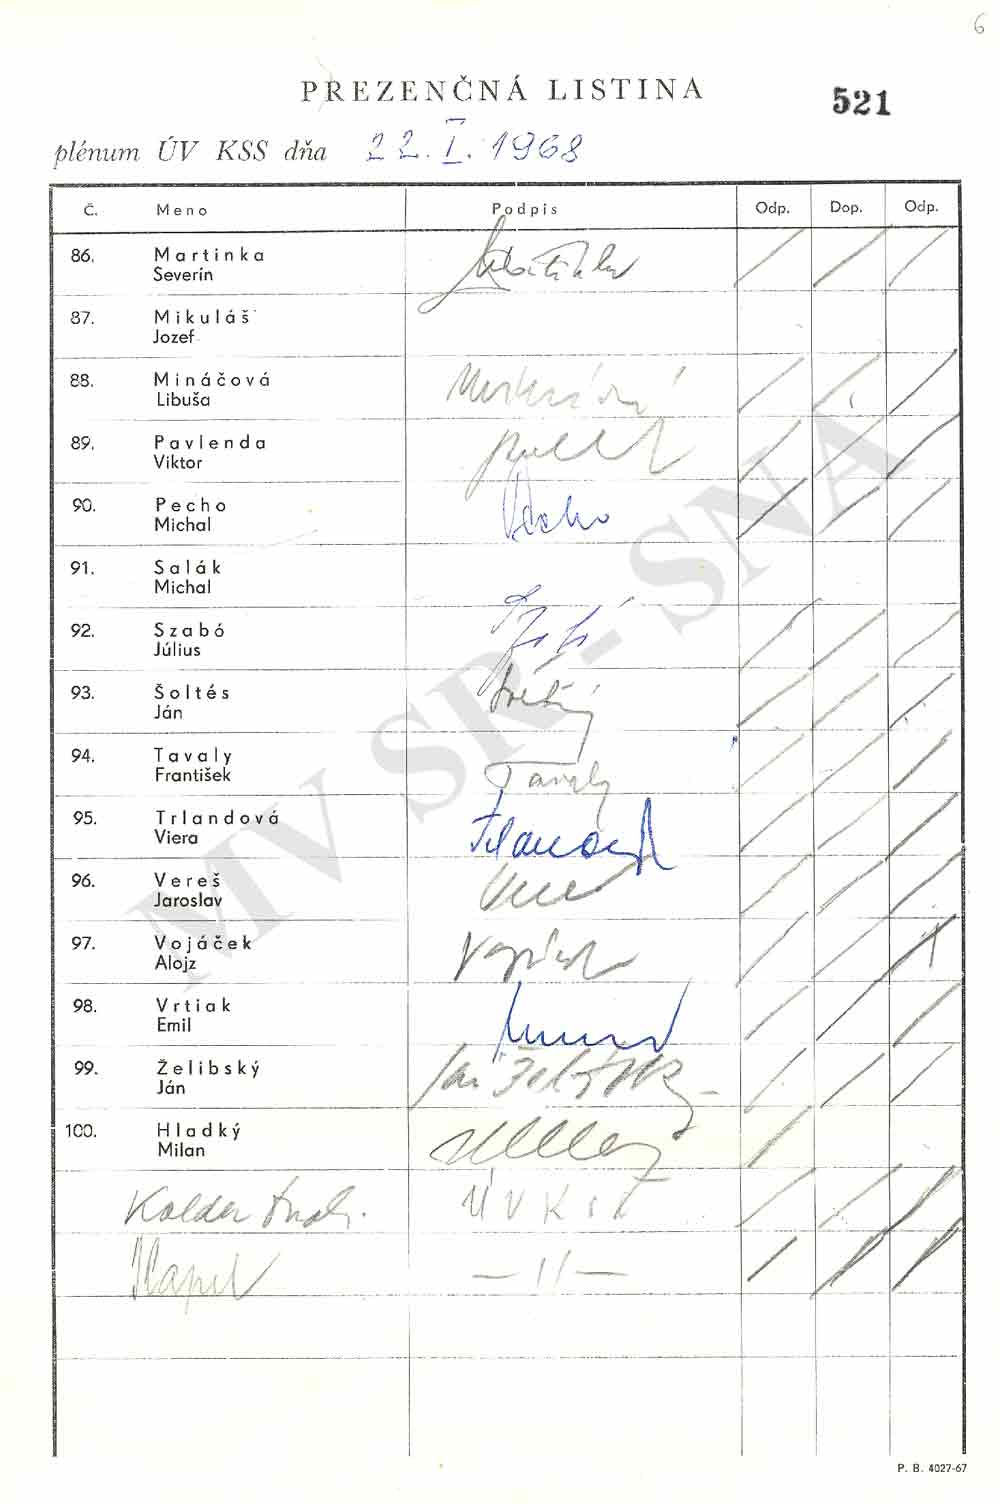 6
PREZENČNÁ LISTINA
521
plénum ÚV KSS dňa 22. I. 1968
Č. Meno Podpis Odp. Dop. Odp.
86. Martinka
Severín
87. Mikuláš
Jozef
88. Mináčová
Libuša
89. Pavlenda
Viktor
90. Pecho Pecho
Michal
91. Salák
Michal
92. Szabó
Július
93. Šoltés
Ján
94. Tavaly Tavaly
František
95. Trlandová
Viera
96. Vereš
Jaroslav
97. Vojáček
Alojz
98. Vrtiak
Emil
99. Želibský Ján Želibský
Ján
100. Hladký
Milan
Kolder ÚV KSČ
Kapek — 11 —
P. B. 4027-67
MV SR - SNA